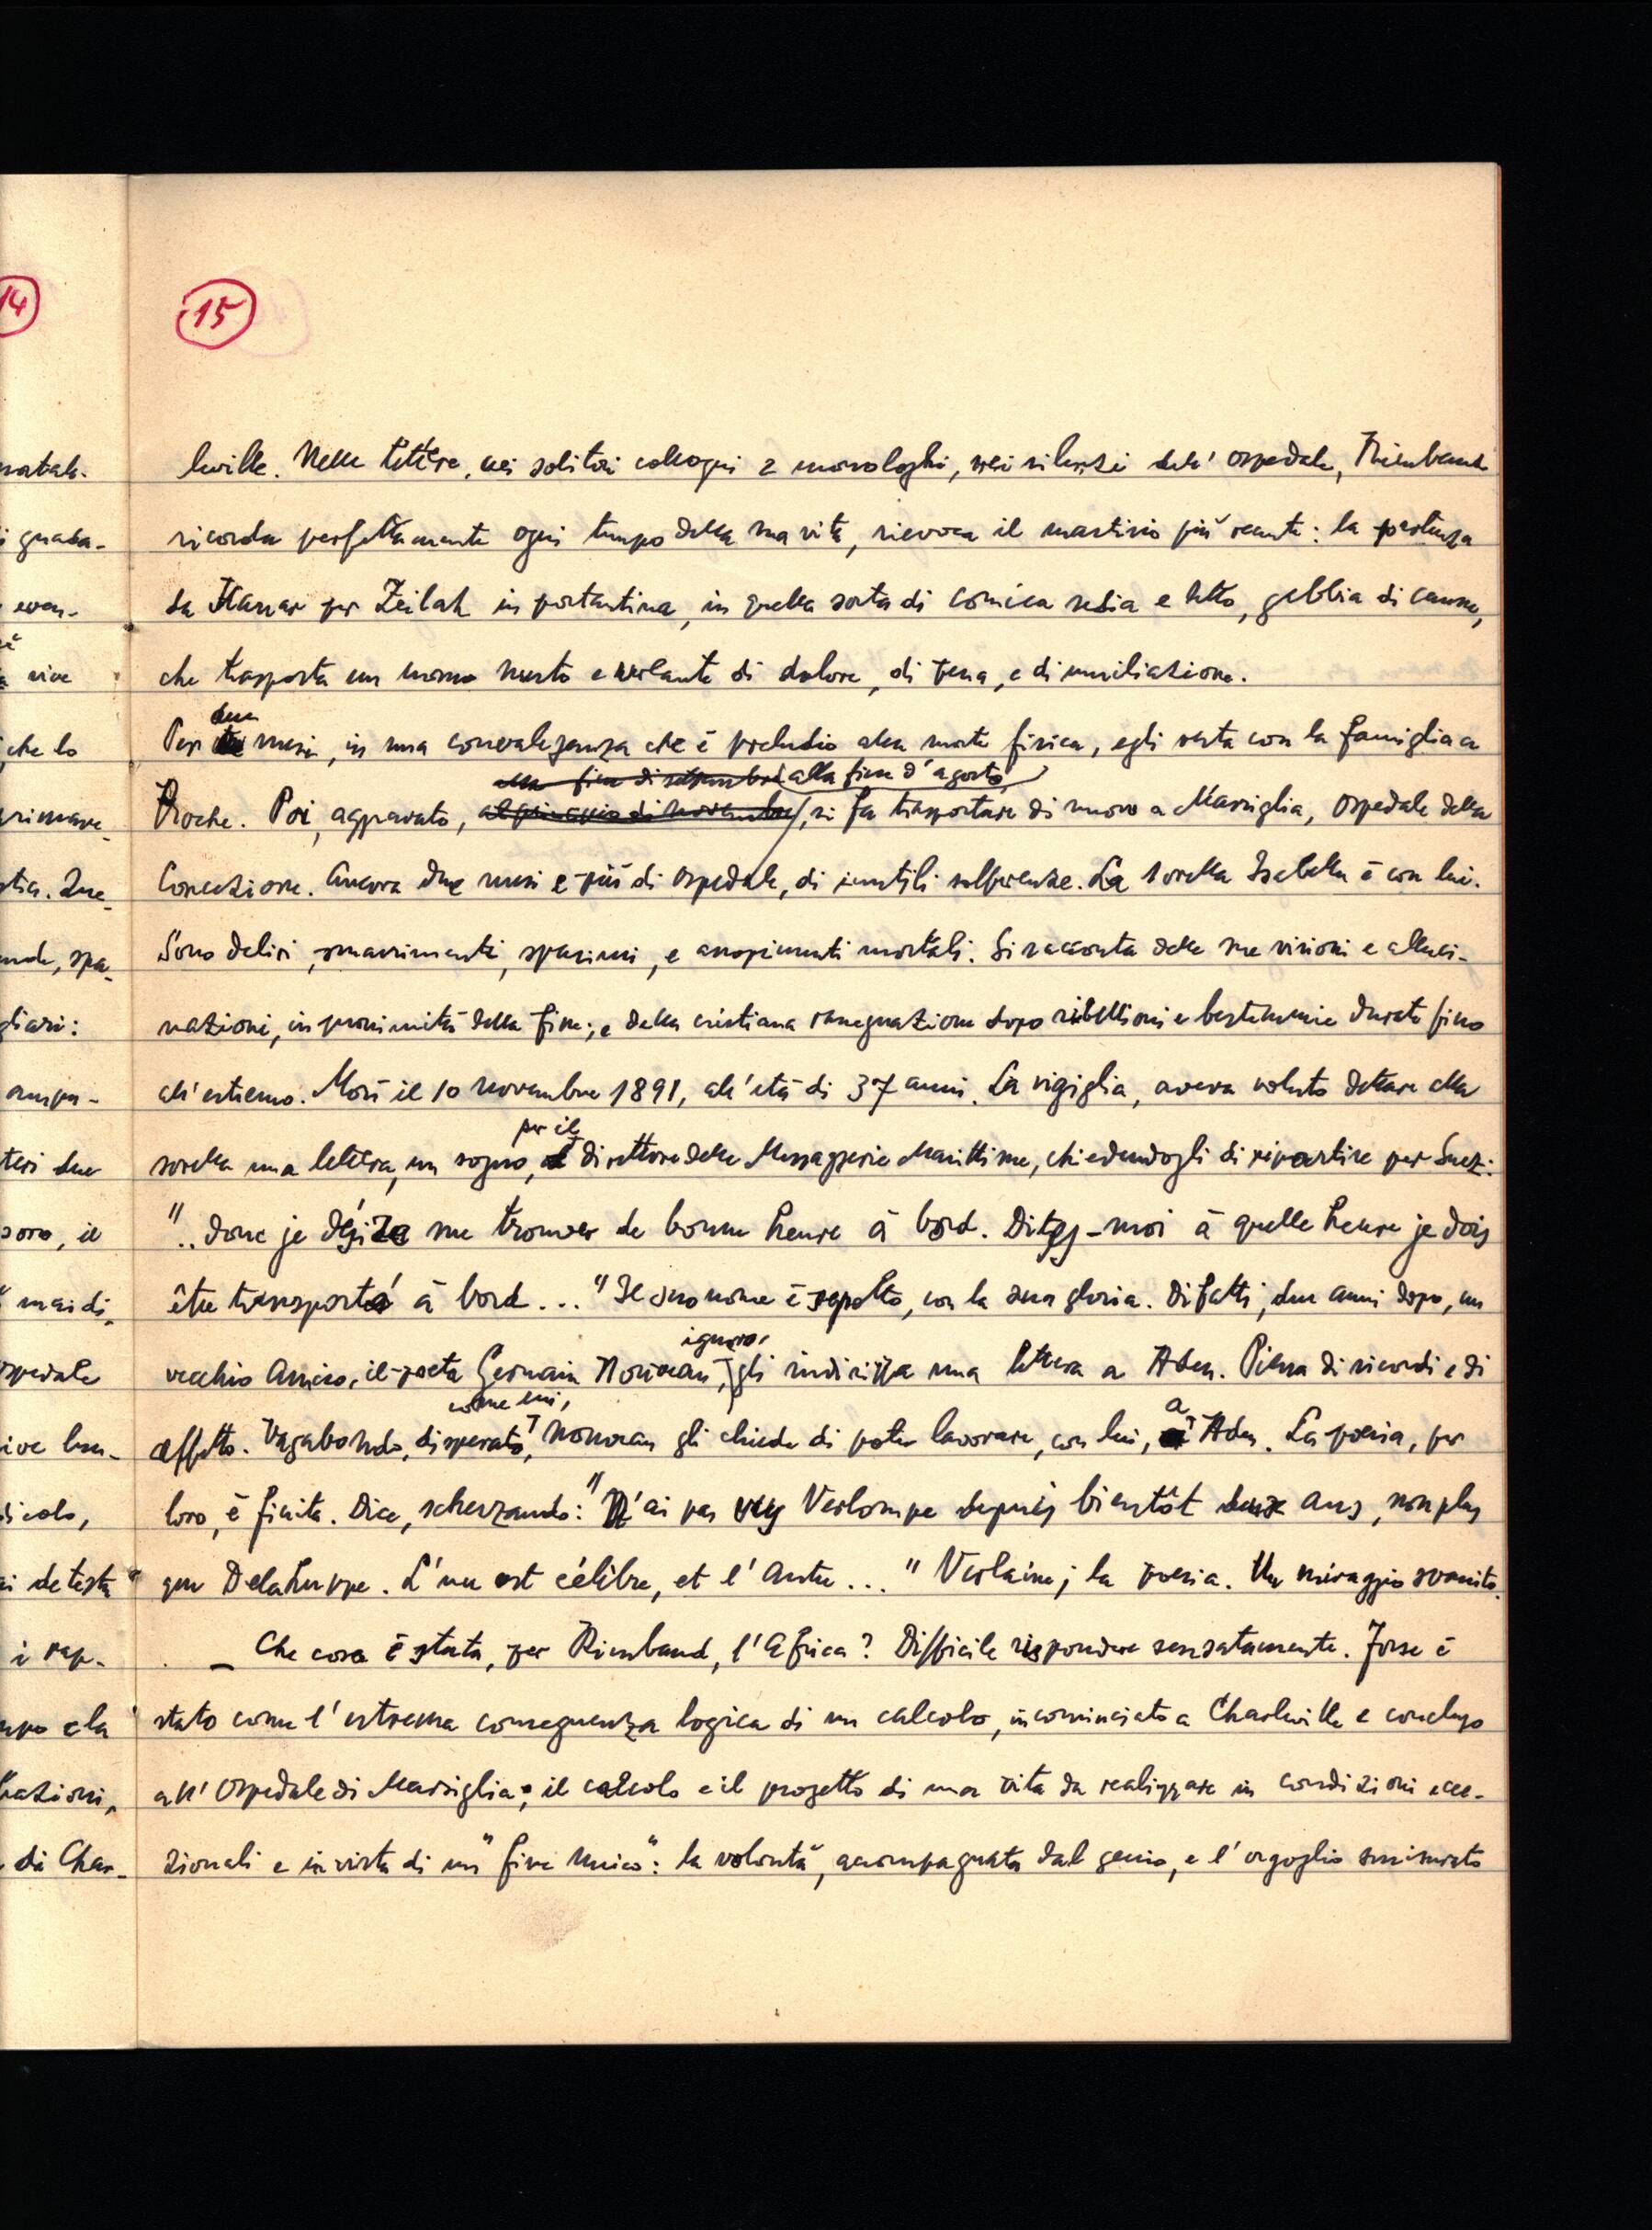 15
leville. Nelle lettere, nei solitari colloqui e monologhi, nei silenzi dell'ospedale, Rimbaud
ricorda perfettamente ogni tempo della sua vita, rievoca il martirio più recente: la partenza
da Harrar per Zeilah in portantina, in quella sorta di comica sedia e letto, gabbia di canne,
che trasporta un uomo muto e urlante di dolore, di pena, e di umiliazione.
due
Per mesi, in una convalescenza che è preludio alla morte fisica, egli resta con la famiglia a
alla fine di settembre alla fine d'agosto,
Roche. Poi, aggravato, al principio di novembre, si fa trasportare di nuovo a Marsiglia, ospedale della
Concezione. Ancora due mesi e più di ospedale, di inutili sofferenze. La sorella Isabella è con lui.
Sono deliri, smarrimenti, spasimi, e assopimenti mortali. Si racconta delle sue visioni e alluci-
nazioni, in prossimità della fine; e della cristiana rassegnazione dopo ribellioni e bestemmie durate fino
all'estremo. Morì il 10 novembre 1891, all'età di 37 anni. La vigiglia, aveva voluto dettare alla
per il
sorella una lettera, un sogno, direttore delle Messaggerie Marittime, chiedendogli di ripartire per Suez:
".. donc je désire me trouver de bonne heure à bord. Dites-moi à quelle heure je dois
être transporté à bord..." Il suo nome è sepolto, con la sua gloria. Difatti, due anni dopo, un
ignaro,
vecchio amico, il poeta Germain Nouveau, gli indirizza una lettera a Aden. Piena di ricordi e di
come lui,
a
affetto. Vagabondo, disperato, Nouveau gli chiede di poter lavorare, con lui, Aden. La poesia, per
loro, è finita. Dice, scherzando: "N'ai pas vu Verlompe depuis bientôt deux ans, non plus
que Delahuppe. L'un est célèbre, et l'autre..." Verlaine; la poesia. Un miraggio svanito.
— Che cosa è stata, per Rimbaud, l'Africa? Difficile rispondere sensatamente. Forse è
stato come l'estrema conseguenza logica di un calcolo, incominciato a Charleville e concluso
all'ospedale di Marsiglia; il calcolo e il progetto di una vita da realizzare in condizioni ecce-
zionali e in vista di un "fine unico": la volontà, accompagnata dal genio, e l'orgoglio smisurato